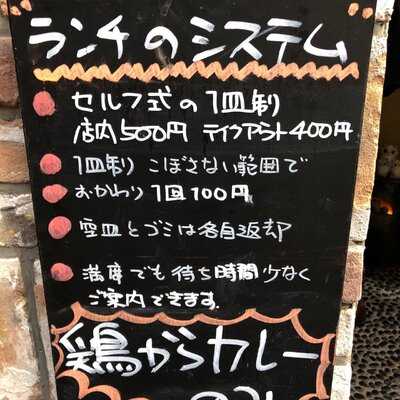 ランチのシステム
セルフ式の1皿制
店内500円 テイクアウト400円
1皿制 こぼさない範囲で
おかわり 1回100円
空皿とゴミは各自返却
満席でも待ち時間少なく
ご案内できます.
鶏からカレー